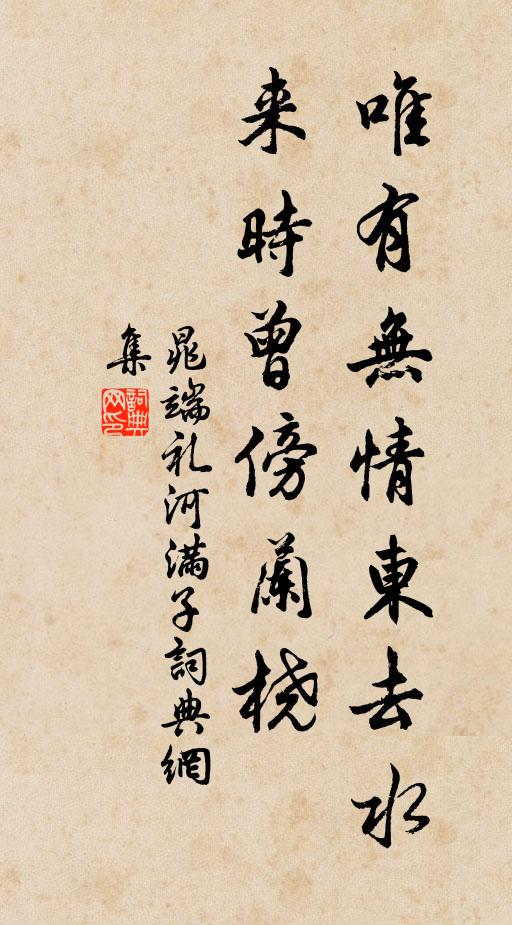 唯有無情東去水
来時曾傍蘭桡
晁端礼河滿子詞典網
集
詞典网印